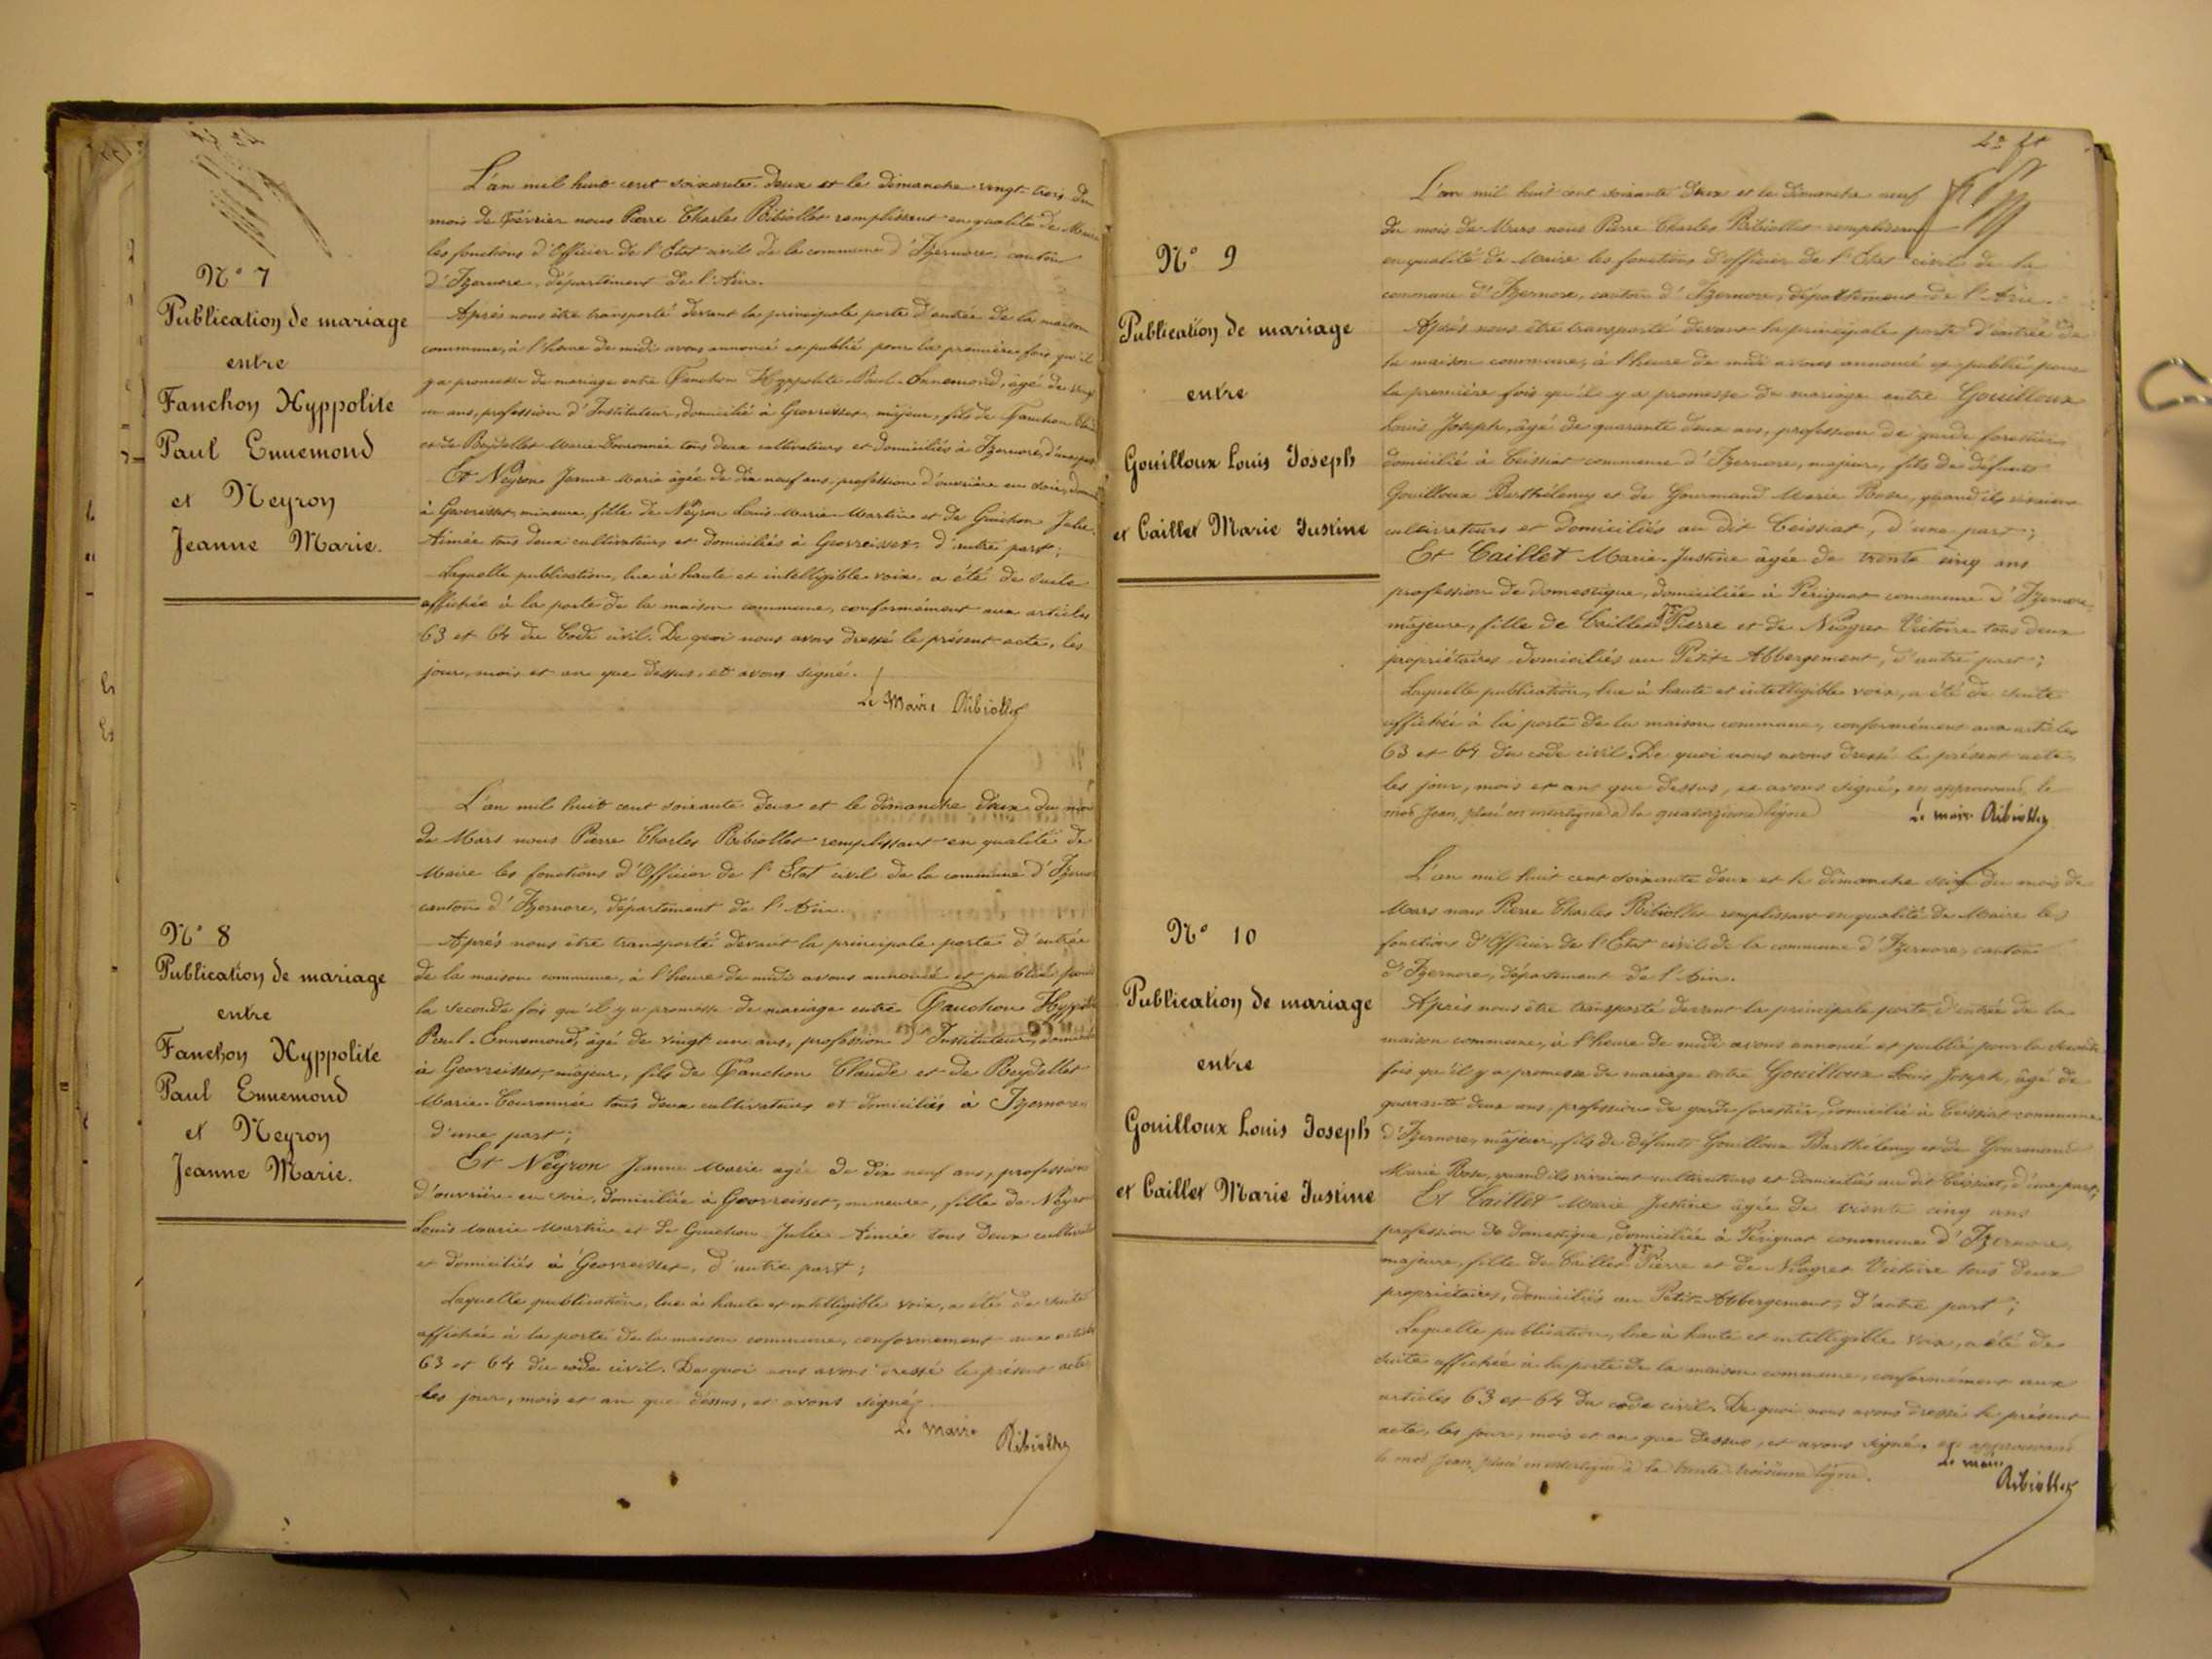 N° 7
Publication de mariage
entre
Fanchon Hyppolite
Paul Ennemond
et Neyron
Jeanne Marie.
L'an mil huit cent soixante-deux et le dimanche vingt-trois du
mois de Février nous Pierre Charles Ribiollet remplissant en qualité de Maire
les fonctions d'Officier de l'Etat civil de la commune d'Izernore, canton
d'Izernore, département de l'Ain.
Après nous être transporté devant la principale porte d'entrée de la maison
commune, à l'heure de midi avons annoncé et publié pour la première fois qu'il
y a promesse de mariage entre Fanchon Hyppolite Paul-Ennemond, âgé de vingt
un ans, profession d'Instituteur, domicilié à Geovreisset, majeur, fils de Fanchon
et de Reydellet Marie-Couronnée tous deux cultivateurs et domiciliés à Izernore, d'une part
Et Neyron Jeanne Marie âgée de dix neuf ans, profession d'ouvrière en soie,
à Geovreisset, mineure, fille de Neyron Louis-Marie-Martin et de Guichon Julie
Aimée tous deux cultivateurs et domiciliés à Geovreisset, d'autre part;
Laquelle publication, lue à haute et intelligible voix, a été de suite
affichée à la porte de la maison commune, conformément aux articles
63 et 64 du Code civil. De quoi nous avons dressé le présent acte, les
jour, mois et an que dessus, et avons signé.
Le Maire Ribiollet
N° 8
Publication de mariage
entre
Fanchon Hyppolite
Paul Ennemond
et Neyron
Jeanne Marie.
L'an mil huit cent soixante deux et le dimanche deux du mois
de Mars nous Pierre Charles Ribiollet remplissant en qualité de
Maire les fonctions d'Officier de l'Etat civil de la commune d'Izernore
canton d'Izernore, département de l'Ain.
Après nous être transporté devant la principale porte d'entrée
de la maison commune, à l'heure de midi avons annoncé et publié pour
la seconde fois qu'il y a promesse de mariage entre Fanchon Hyppolite
Paul-Ennemond, âgé de vingt un ans, profession d'Instituteur, domicilié
à Geovreisset, majeur, fils de Fanchon Claude et de Reydellet
Marie-Couronnée tous deux cultivateurs et domiciliés à Izernore
d'une part;
Et Neyron Jeanne Marie agée de dix neuf ans, profession
d'ouvrière en soie, domiciliée à Geovreisset, mineure, fille de Neyron
Louis Marie Martin et de Guichon Julie Aimée tous deux cultivateurs
et domiciliés à Geovreisset, d'autre part;
Laquelle publication, lue à haute et intelligible voix, a été de suite
affichée à la porte de la maison commune, conformément aux articles
63 et 64 du code civil. De quoi nous avons dressé le présent acte
les jour, mois et an que dessus, et avons signé.
Le Maire
Ribiollet
N° 9
Publication de mariage
entre
Gouilloux Louis Joseph
et Caillet Marie Justine
L'an mil huit cent soixante deux et le dimanche neuf
du mois de Mars nous Pierre Charles Ribiollet remplissant
en qualité de Maire les fonctions d'officier de l'Etat civil de la
commune d'Izernore, canton d'Izernore, département de l'Ain.
Après nous être transporté devant la principale porte d'entrée de
la maison commune, à l'heure de midi avons annoncé et publié pour
la première fois qu'il y a promesse de mariage entre Gouilloux
Louis Joseph, âgé de quarante deux ans, profession de garde forestier
domicilié à Ceissiat commune d'Izernore, majeur, fils de défunts
Gouilloux Barthélemy et de Gourmand Marie Rose, quand ils vivaient
cultivateurs et domiciliés au dit Ceissiat, d'une part;
Et Caillet Marie-Justine âgée de trente cinq ans
profession de domestique, domiciliée à Perignat commune d'Izernore,
majeure, fille de Caillet Jn Pierre et de Niogret Victoire tous deux
propriétaires domiciliés au Petit-Abbergement, d'autre part;
Laquelle publication, lue à haute et intelligible voix, a été de suite
affichée à la porte de la maison commune, conformément aux articles
63 et 64 du code civil. De quoi nous avons dressé le présent acte
les jour, mois et an que dessus, et avons signé, en approuvant le
mot Jean, placé en interligne à la quatorzième ligne
Le maire Ribiollet
N° 10
Publication de mariage
entre
Gouilloux Louis Joseph
et Caillet Marie Justine
L'an mil huit cent soixante deux et le dimanche seize du mois de
Mars nous Pierre Charles Ribiollet remplissant en qualité de Maire les
fonctions d'Officier de l'Etat civil de la commune d'Izernore, canton
d'Izernore, département de l'Ain.
Après nous être transporté devant la principale porte d'entrée de la
maison commune, à l'heure de midi avons annoncé et publié pour la seconde
fois qu'il y a promesse de mariage entre Gouilloux Louis Joseph, âgé de
quarante deux ans, profession de garde forestier, domicilié à Ceissiat commune
d'Izernore, majeur, fils de défunts Gouilloux Barthélemy et de Gourmand
Marie Rose, quand ils vivaient cultivateurs et domiciliés au dit Ceissiat, d'une part;
Et Caillet Marie Justine âgée de trente cinq ans
profession de domestique, domiciliée à Perignat commune d'Izernore,
majeure, fille de Caillet Jn Pierre et de Niogret Victoire tous deux
propriétaires, domiciliés au Petit-Abbergement, d'autre part;
Laquelle publication, lue à haute et intelligible voix, a été de
suite affichée à la porte de la maison commune, conformément aux
articles 63 et 64 du code civil. De quoi nous avons dressé le présent
acte, les jour, mois et an que dessus, et avons signé, en approuvant
le mot Jean, placé en interligne à la trente troisième ligne.
Le maire
Ribiollet